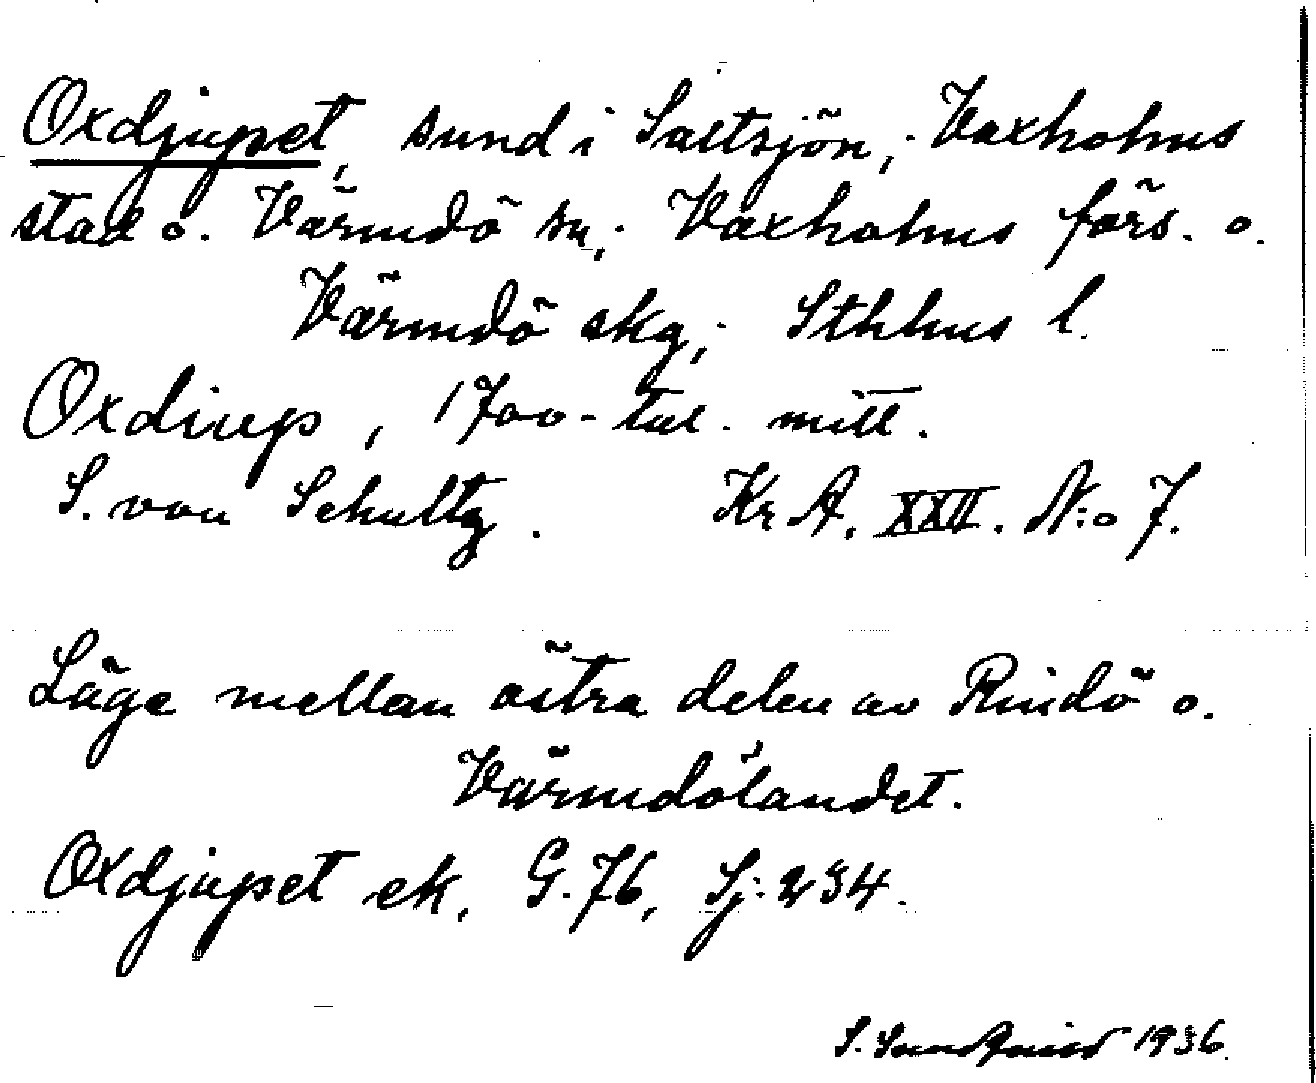 Oxdjupet, sund i Saltsjön; Vaxholms
stad o. Värmdö sn; Vaxholms förs. o.
Värmdö skg; Sthlms l.
Oxdiup, 1700-tal. mitt.
S. von Schultz. Kr A. XXII. N:o 7.
Läge mellan östra delen av Rindö o.
Värmdölandet.
Oxdjupet ek. G. 76, Sj. 234.
S. 1936.